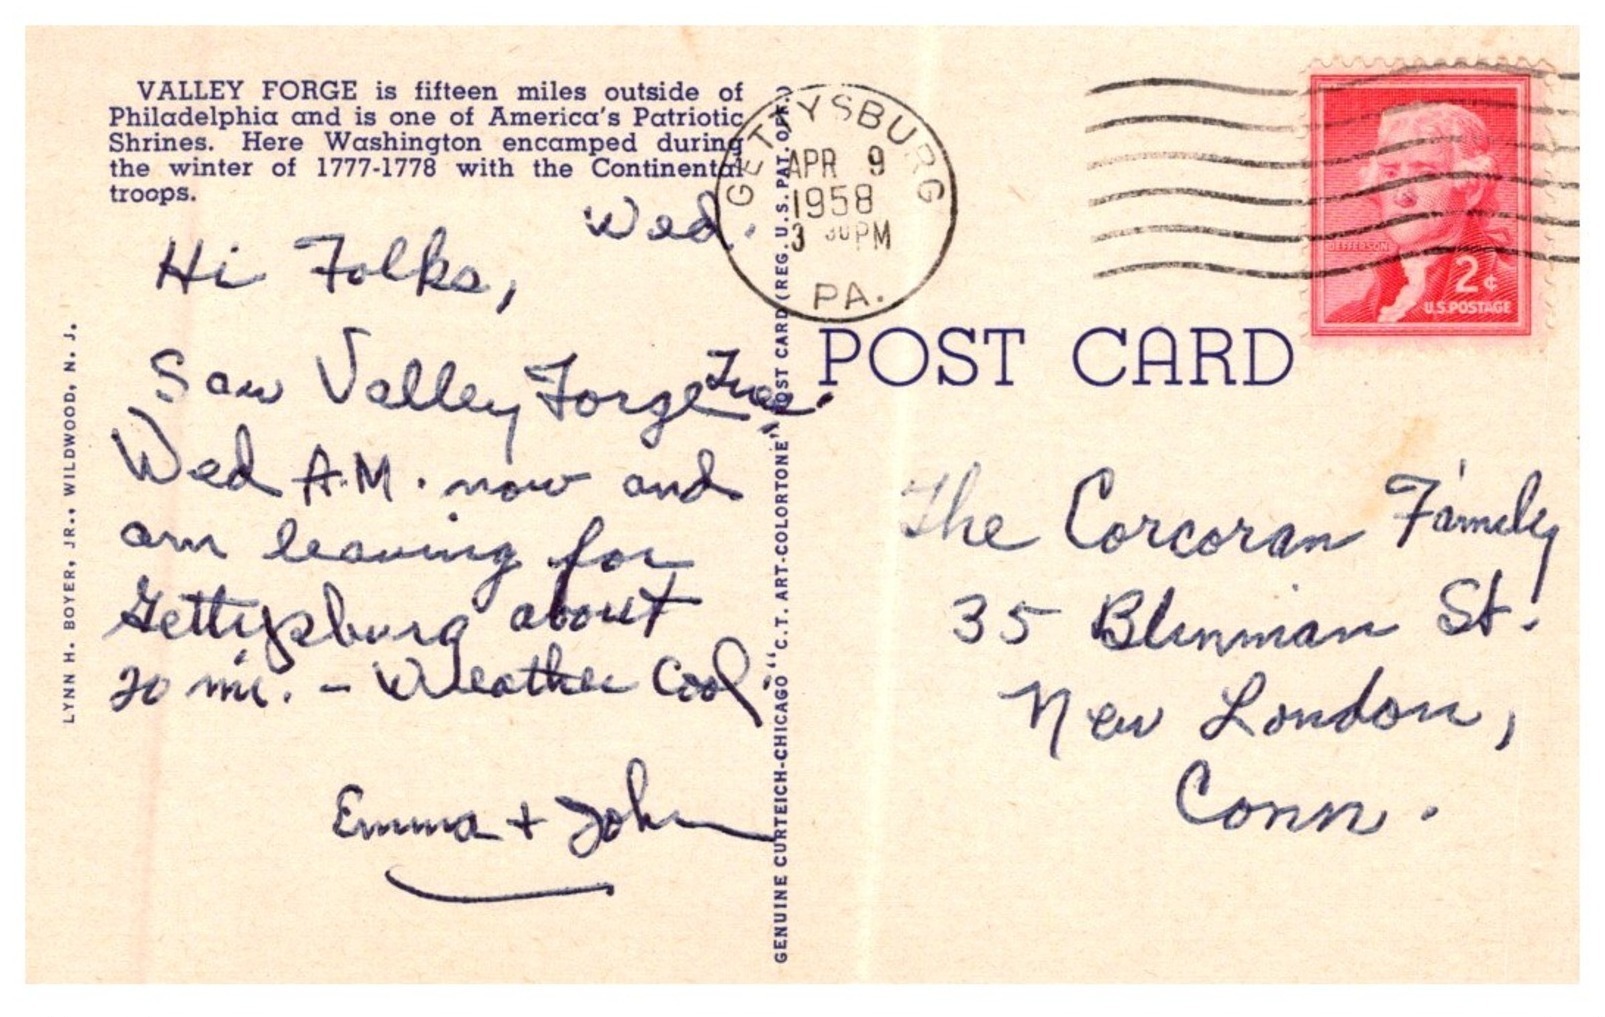 VALLEY FORGE is fifteen miles outside of
Philadelphia and is one of America's Patriotic
Shrines. Here Washington encamped during
the winter of 1777-1778 with the Continental
troops.
Wed.
Hi Folks,
Saw Valley Forge Tues.
Wed A.M. now and
am leaving for
Gettysburg about
20 mi. - Weather Cool.
Emma + John
LYNN H. BOYER, JR., WILDWOOD, N. J.
GENUINE CURTEICH-CHICAGO "C.T. ART-COLORTONE" POST CARD (REG. U.S. PAT. OFF.)
GETTYSBURG
APR 9
1958
3 30 PM
PA.
JEFFERSON
2¢
U.S. POSTAGE
POST CARD
The Corcoran Family
35 Blinman St.
New London,
Conn.